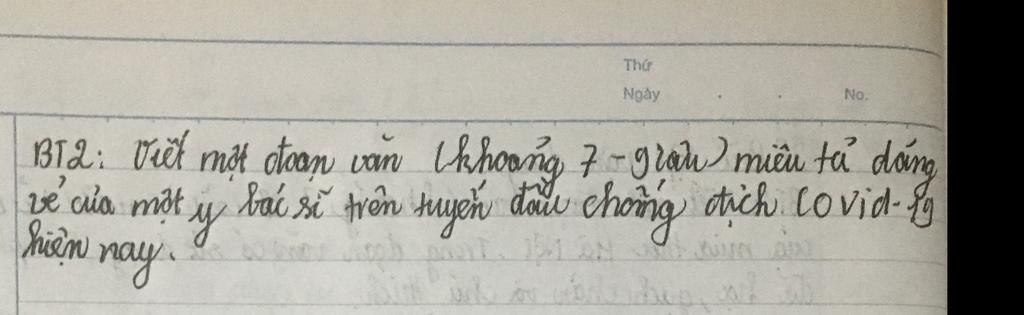 Thứ
Ngày . . No.
BT2: Viết một đoạn văn (khoảng 7-9 câu) miêu tả dáng
vẻ của một y bác sĩ trên tuyến đầu chống dịch Covid-19
hiện nay.